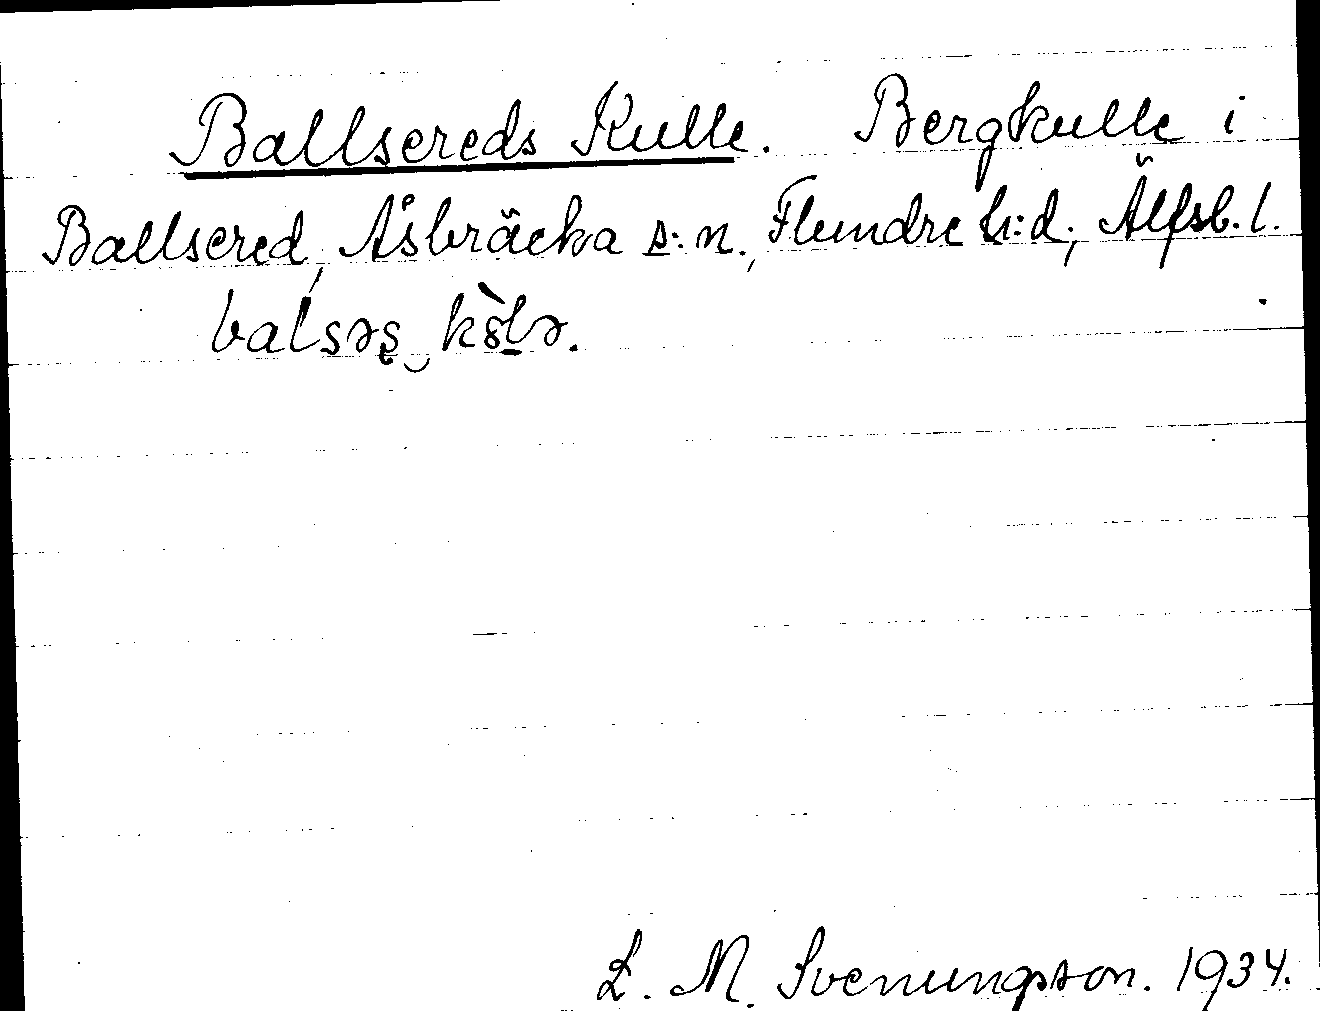 Ballsereds Kulle. Bergkulle i
Ballsered, Åsbräcka s:n., Flundre h:d., Älfsb. l.
L. M. Svenungson. 1934.